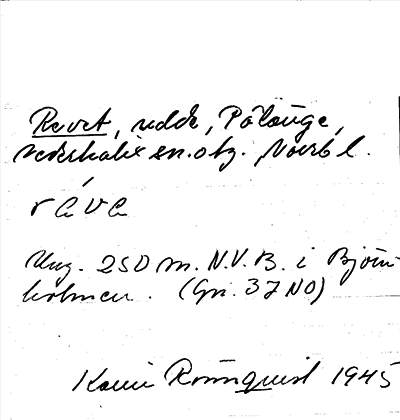 Revet, udde, Pålänge,
Nederkalix sn. o tg. Norrb l.
ráva
Ung. 250 m. N.V. B. i Björn-
holmen. (Gn. 37 NO)
Karin Rönnquist 1945